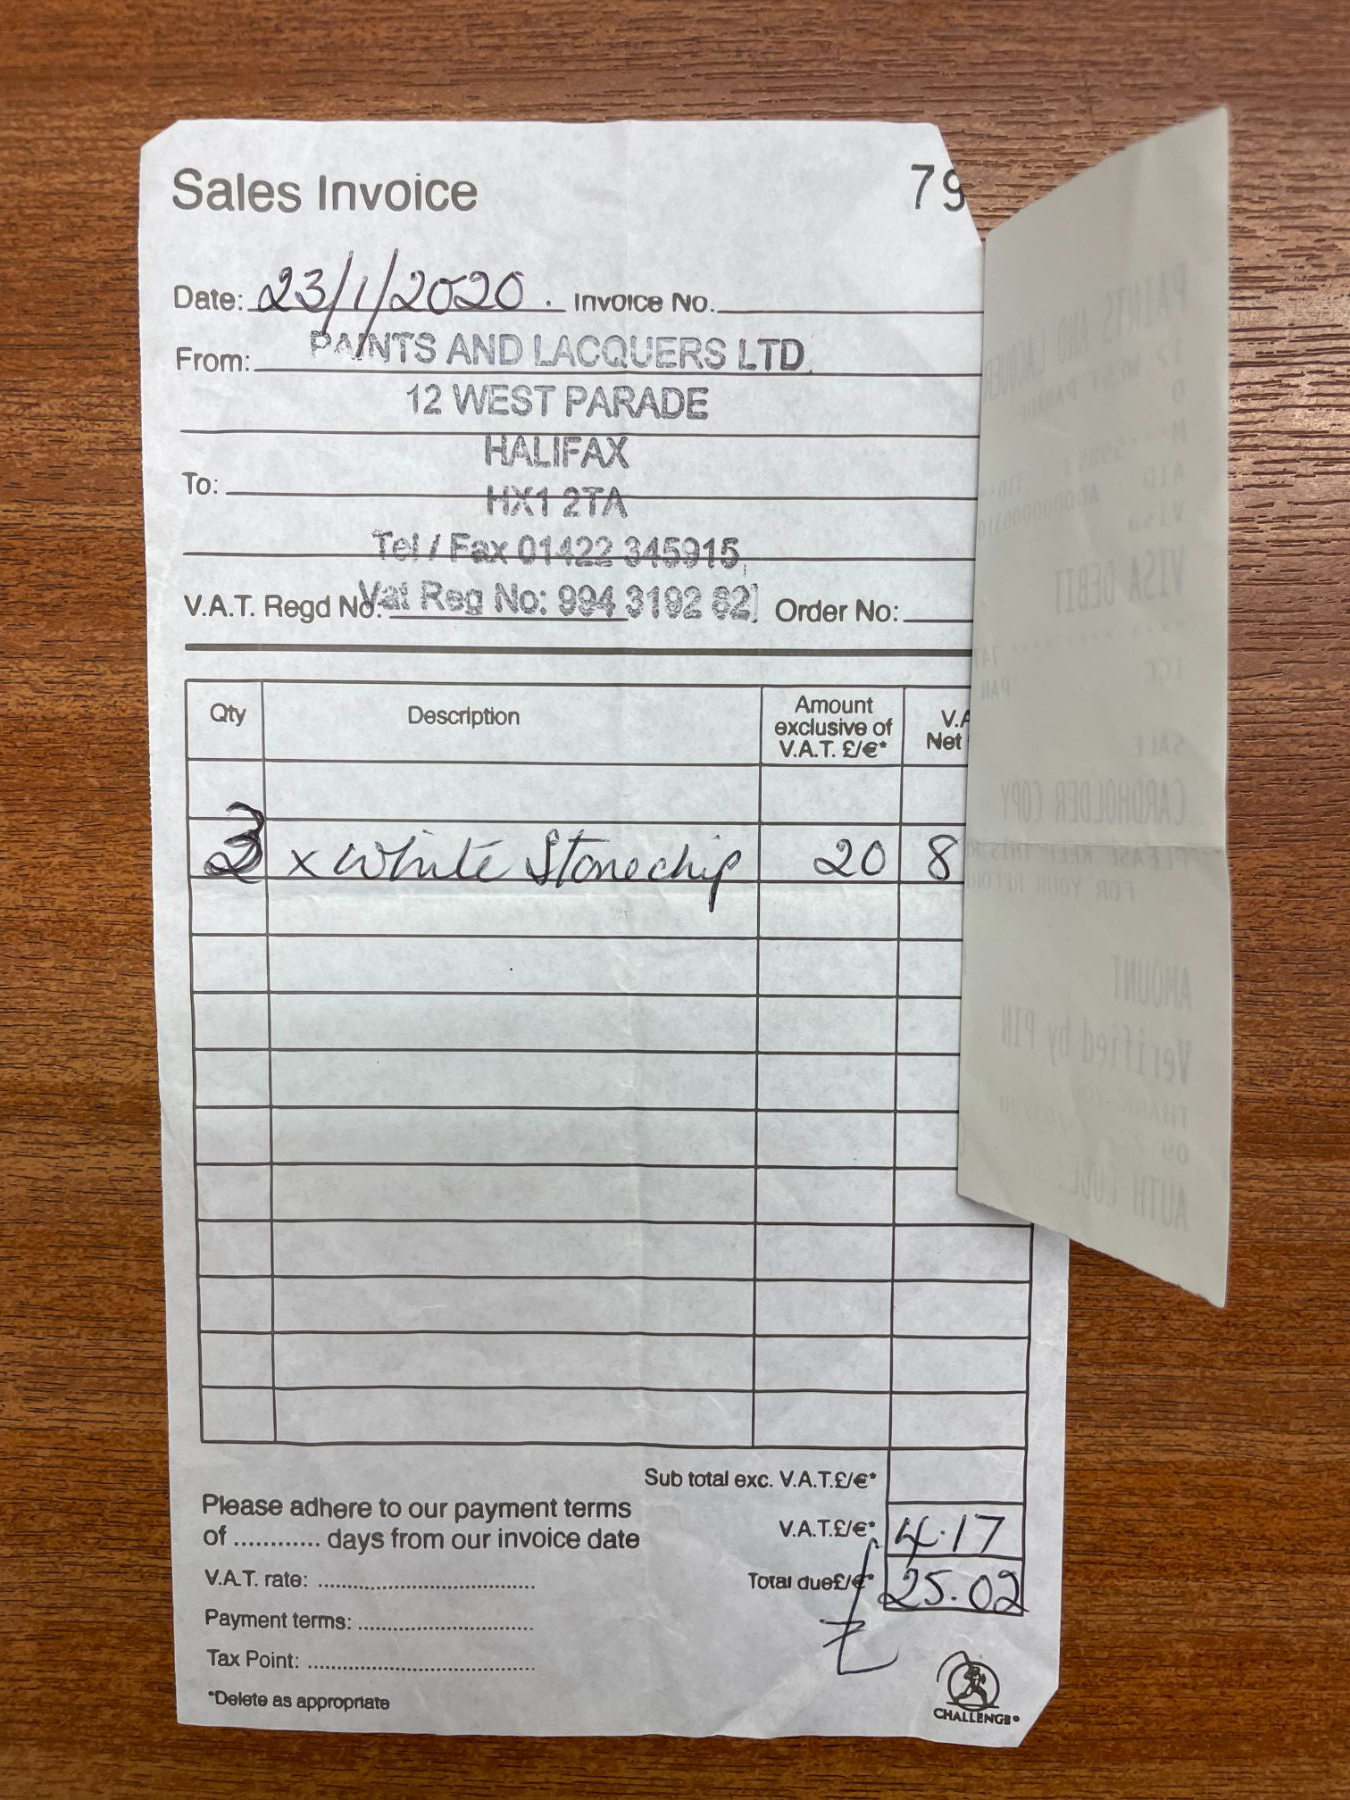 Sales Invoice 79
Date: 23/1/2020. Invoice No.
From: PAINTS AND LACQUERS LTD
12 WEST PARADE
HALIFAX
To:
HX1 2TA
Tel / Fax 01422 345915
V.A.T. Regd No. Vat Reg No: 994 3192 62 Order No:
Qty Description Amount exclusive of V.A.T. £/€* V.A Net
3 x White Stonechip 20 8
Sub total exc. V.A.T.£/€*
Please adhere to our payment terms
of ............ days from our invoice date
V.A.T.£/€* 4.17
V.A.T. rate:
Total due£/€* 25.02
Payment terms:
Tax Point:
*Delete as appropriate
CHALLENGE
PAINTS AND LACQUER
12 WEST PARADE
AID
Visa
VISA DEBIT
ICC
PAN
SALE
CARDHOLDER COPY
PLEASE KEEP THIS
FOR YOUR RECOR
AMOUNT
Verified by PIN
AUTH CODE